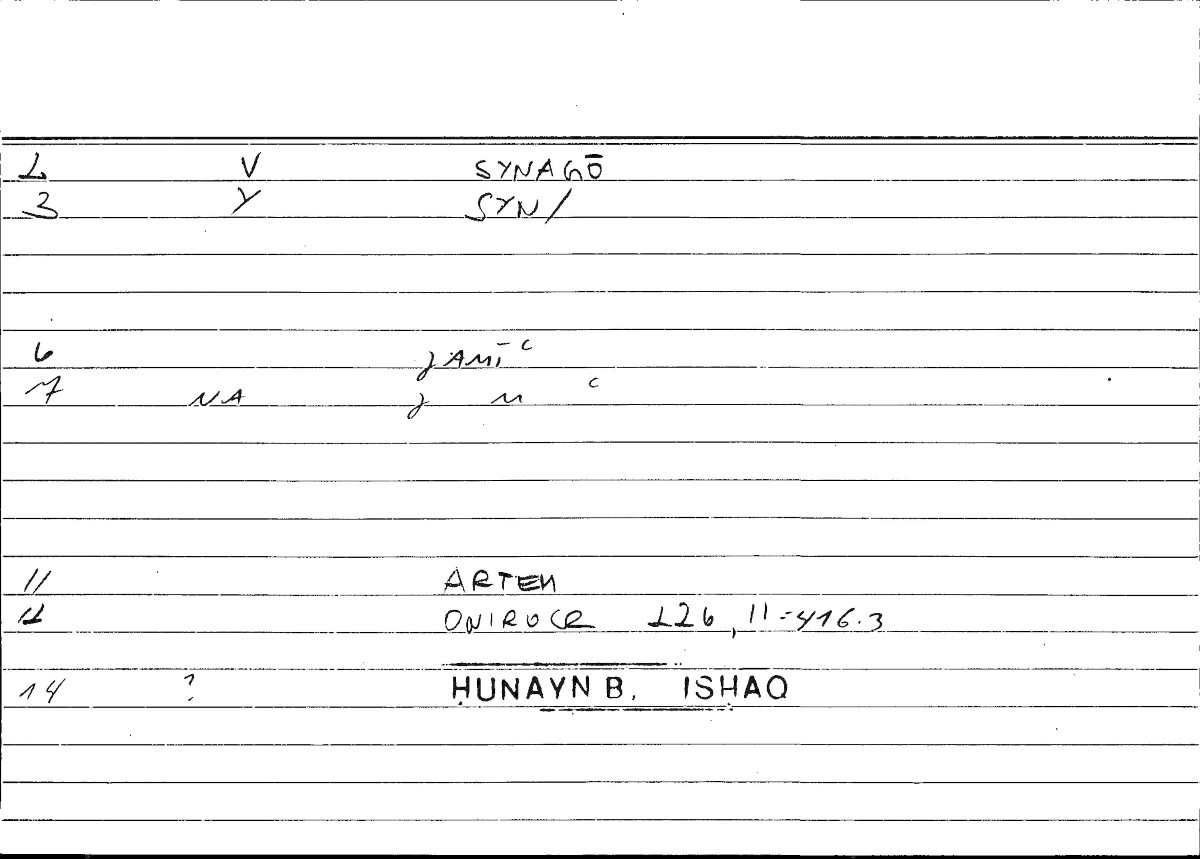 2 V SYNAGŌ
3 Y SYN/
6 ȷAMĪʿ
7 NA ȷ M ʿ
11 ARTEM
12 ONIROCR 226,11=416.3
14 ? HUNAYN B. ISHAQ